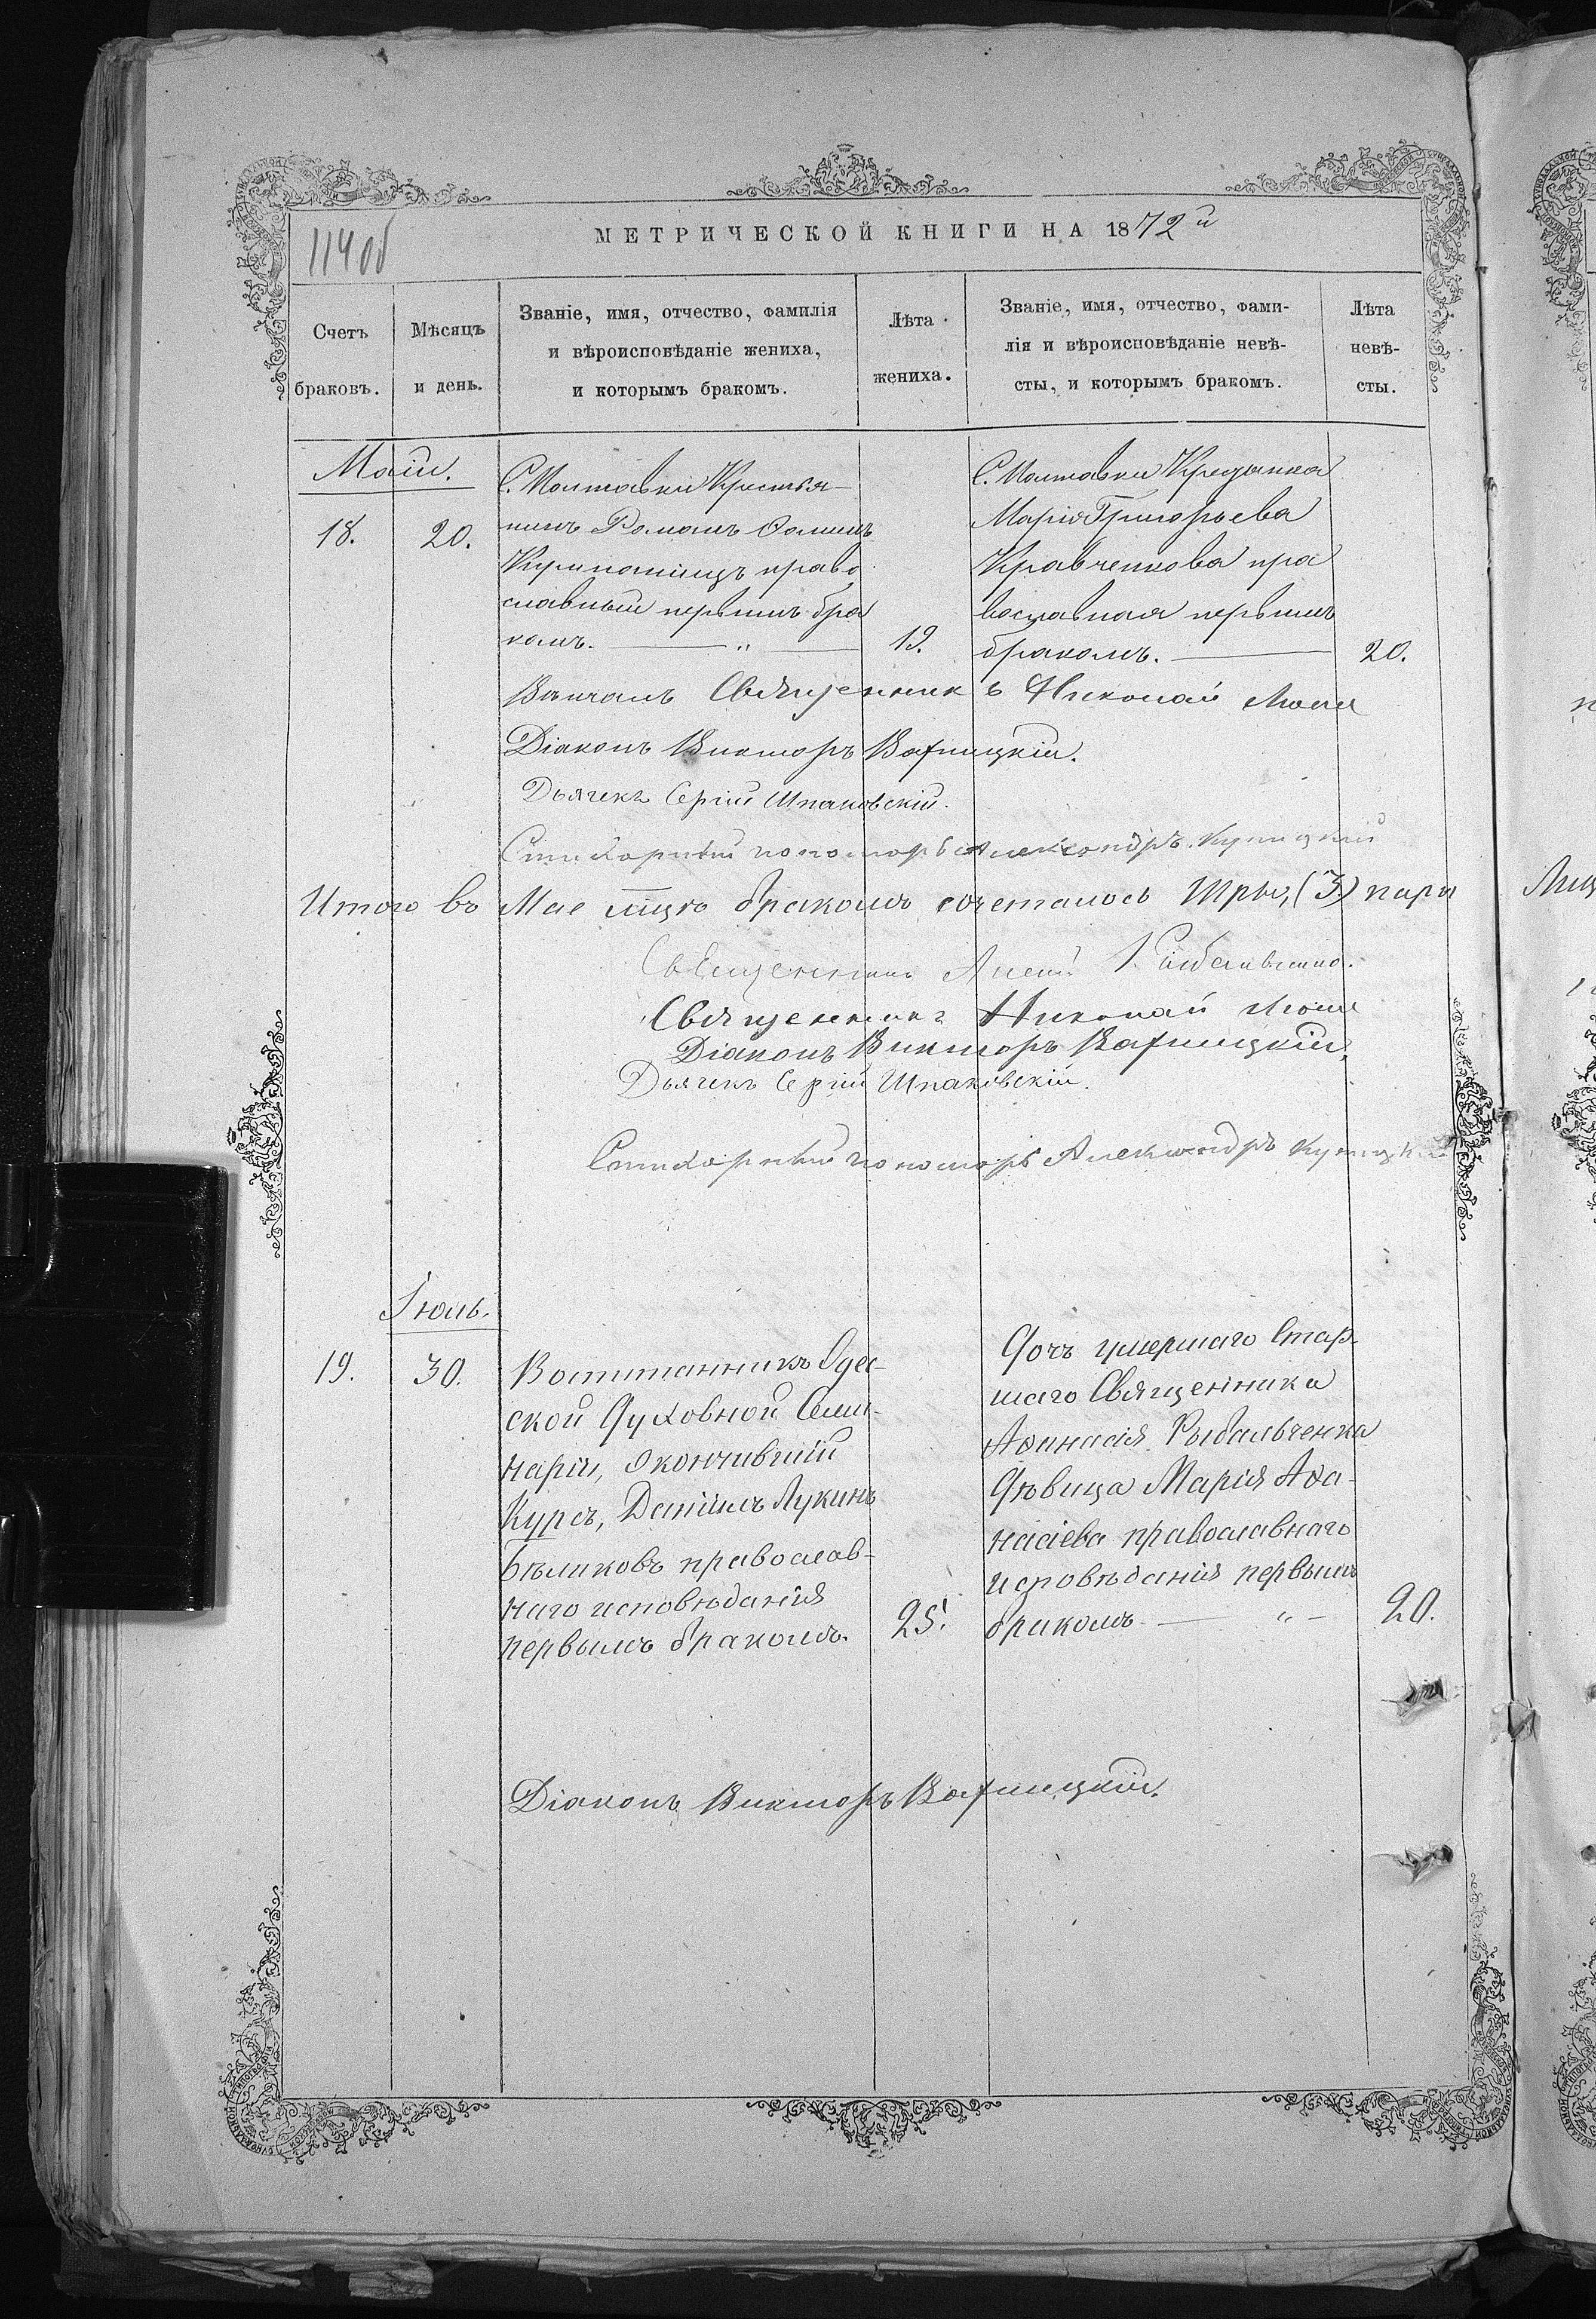 114об
МЕТРИЧЕСКОЙ КНИГИ НА 1872й
Счетъ
браковъ.
Мѣсяцъ
и день.
Званіе, имя, отчество, фамилія
и вѣроисповѣданіе жениха,
и которымъ бракомъ.
Лѣта
жениха.
Званіе, имя, отчество, фами-
лія и вѣроисповѣданіе невѣ-
сты, и которымъ бракомъ.
Лѣта
невѣ-
сты.
Маій.
18.
20.
С. Полтавки Крестья-
нинъ Романъ Ѳоминъ
православный первымъ бра
комъ. — " —
19.
С. Полтавки
Марія Григорьева
Кравченкова пра
вославная первымъ
бракомъ. —
20.
Вѣнчалъ Священникъ Николай
Діаконъ Викторъ Варницкій.
Дьячекъ Сергій Шпаковскій.
Стихарный пономарь Александръ
Итого въ Мае мцѣ бракомъ сочеталось три, (3) пары
Священникъ
Священникъ Николай
Діаконъ Викторъ Варницкій.
Дьячекъ Сергій Шпаковскій.
Стихарный пономарь Александръ
Іюль.
19.
30.
Воспитанникъ Одес-
ской Духовной Семи-
наріи, окончившій
Курсъ, Даніилъ Лукинъ
Бѣликовъ православ-
наго исповѣданія
первымъ бракомъ.
25.
Дочь умершаго Стар-
шаго Священника
Аѳанасія Рыбальченка
Дѣвица Марія Аѳа-
насіева православнаго
исповѣданія первымъ
бракомъ — " —
20.
Діаконъ Викторъ Варницкій.